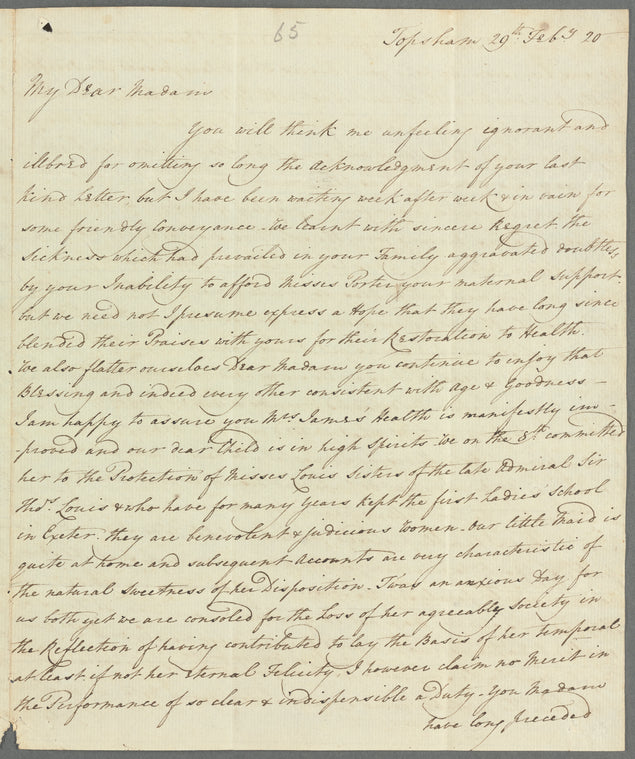 65
Topsham 29th Feby 20
My Dear Madam
You will think me unfeeling ignorant and
illbred for omitting so long the Acknowledgment of your last
kind Letter but I have been waiting week after week & in vain for
some friendly Conveyance. We learnt with sincere Regret the
Sickness which had prevailed in your Family aggravated doubtless
by your Inability to afford Misses Porter your maternal Support.
but we need not I presume express a Hope that they have long since
blended their Praises with yours for their Restoration to Health.
We also flatter ourselves Dear Madam you continue to enjoy that
Blessing and indeed every other consistent with Age & Goodness –
I am happy to assure you Mrs. James's Health is manifestly im-
proved and our dear Child is in high Spirits we on the 8th. committed
her to the Protection of Misses Louis Sisters of the late Admiral Sir
Thos. Louis & who have for many years kept the first Ladies School
in Exeter. they are benevolent & judicious Women. Our little Maid is
quite at home and subsequent Accounts are very characteristic of
the natural Sweetness of her Disposition. Twas an anxious Day for
us both yet we are consoled for the Loss of her agreeably Society in
the Reflection of having contributed to lay the Basis of her temporal
at least if not her Eternal Felicity, I however claim no Merit in
the Performance of so clear & indispensible a Duty. You Madam
have long preceded